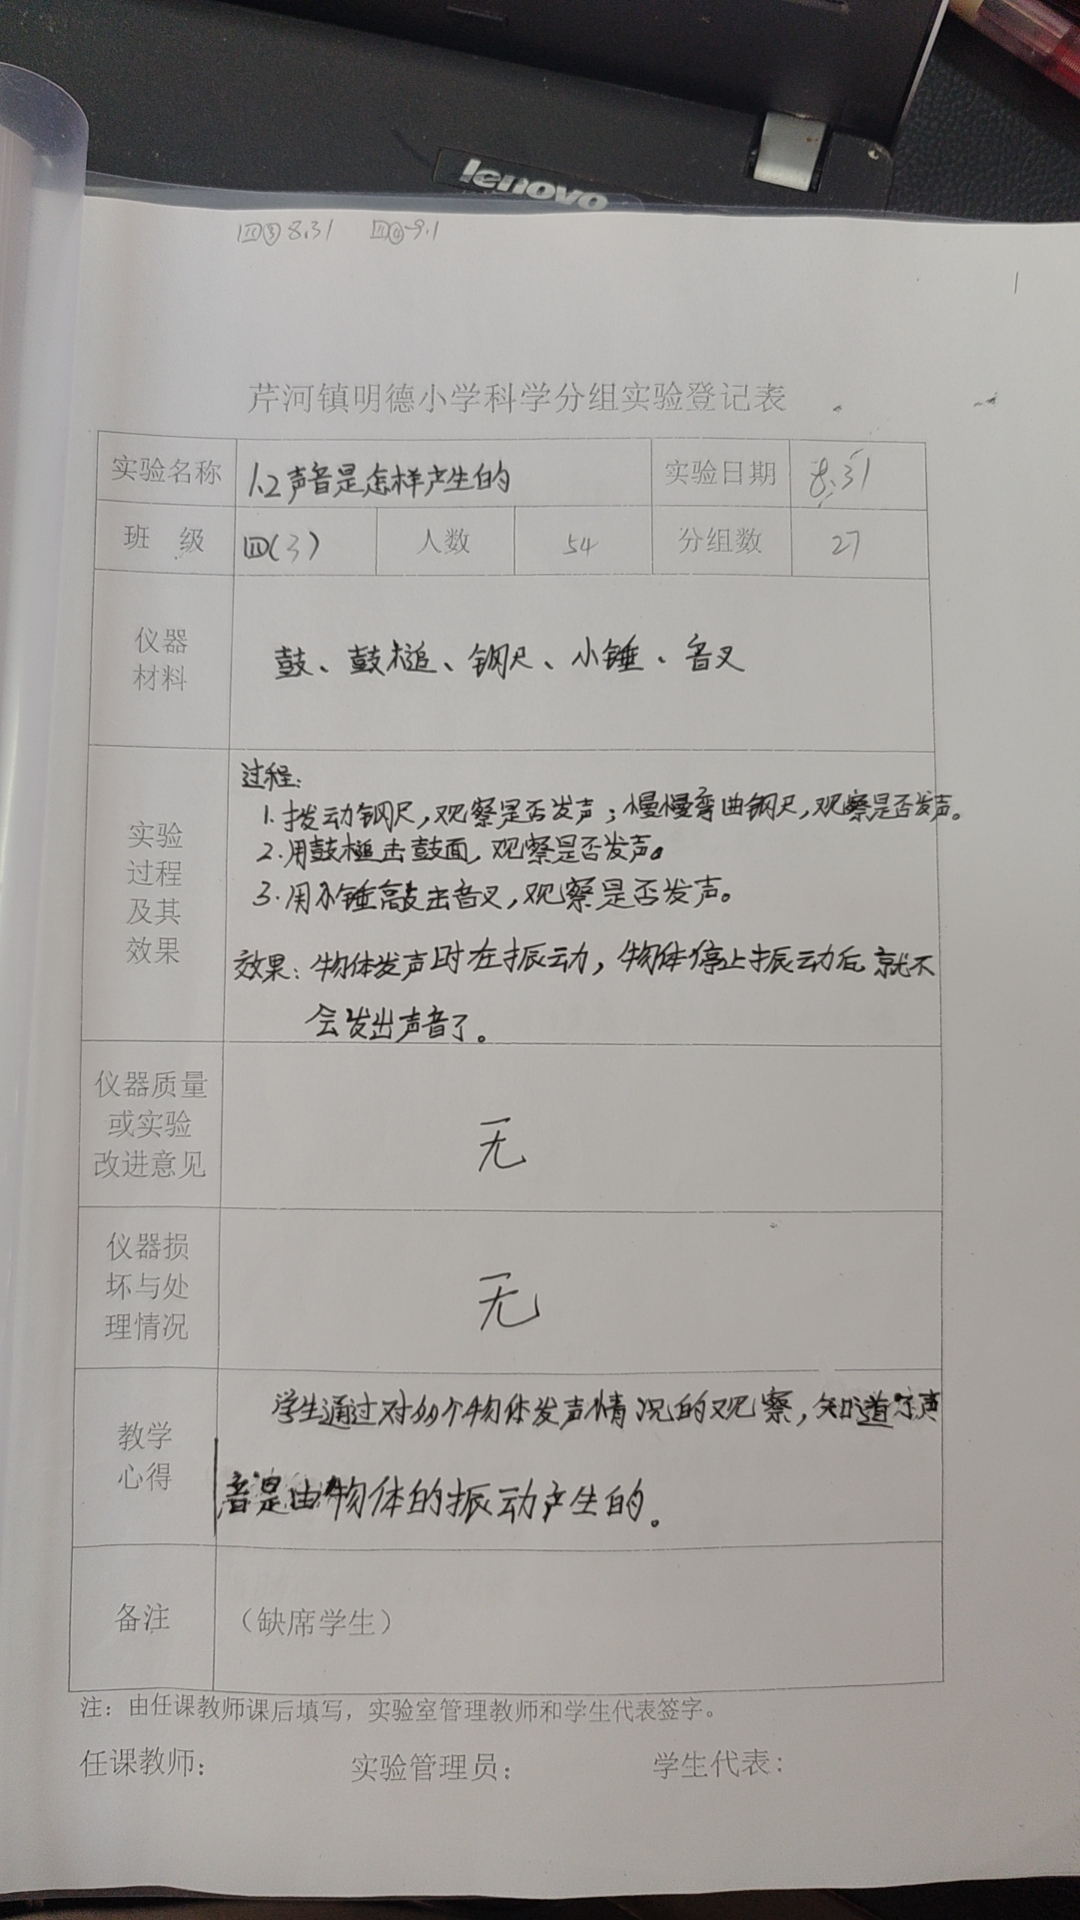 lenovo
四③8.31 四④-9.1
1
芹河镇明德小学科学分组实验登记表
实验名称 1.2声音是怎样产生的 实验日期 8.31
班 级 四(3) 人数 54 分组数 27
仪器
材料
鼓、鼓槌、钢尺、小锤、音叉
实验
过程
及其
效果
过程:
1.拨动钢尺,观察是否发声;慢慢弯曲钢尺,观察是否发声。
2.用鼓槌击鼓面,观察是否发声。
3.用小锤敲击音叉,观察是否发声。
效果:物体发声时在振动,物体停止振动后就不
会发出声音了。
仪器质量
或实验
改进意见
无
仪器损
坏与处
理情况
无
教学
心得
学生通过对多个物体发声情况的观察,知道了声
音是由物体的振动产生的。
备注 (缺席学生)
注:由任课教师课后填写,实验室管理教师和学生代表签字。
任课教师: 实验管理员: 学生代表: